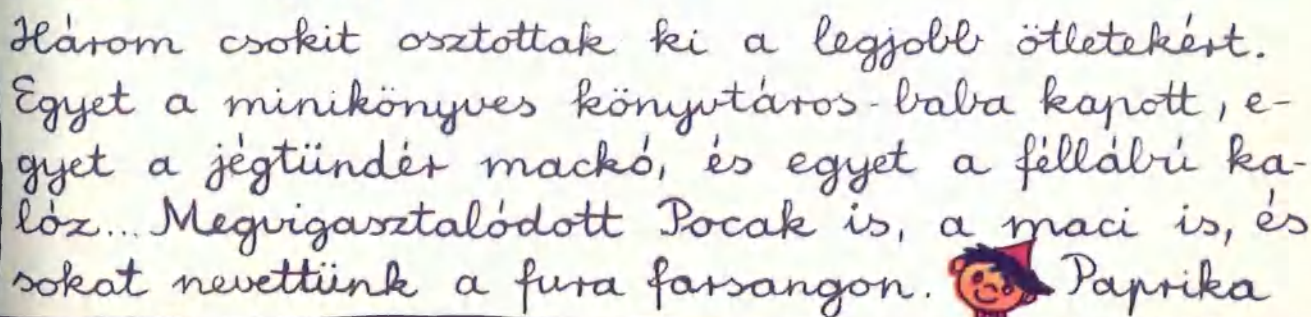 Három csokit osztottak ki a legjobb ötletekért.
Egyet a minikönyves könyvtáros-baba kapott, e-
gyet a jégtündér mackó, és egyet a féllábú ka-
lóz... Megvigasztalódott Pocak is, a maci is, és
sokat nevettünk a fura farsangon. Paprika